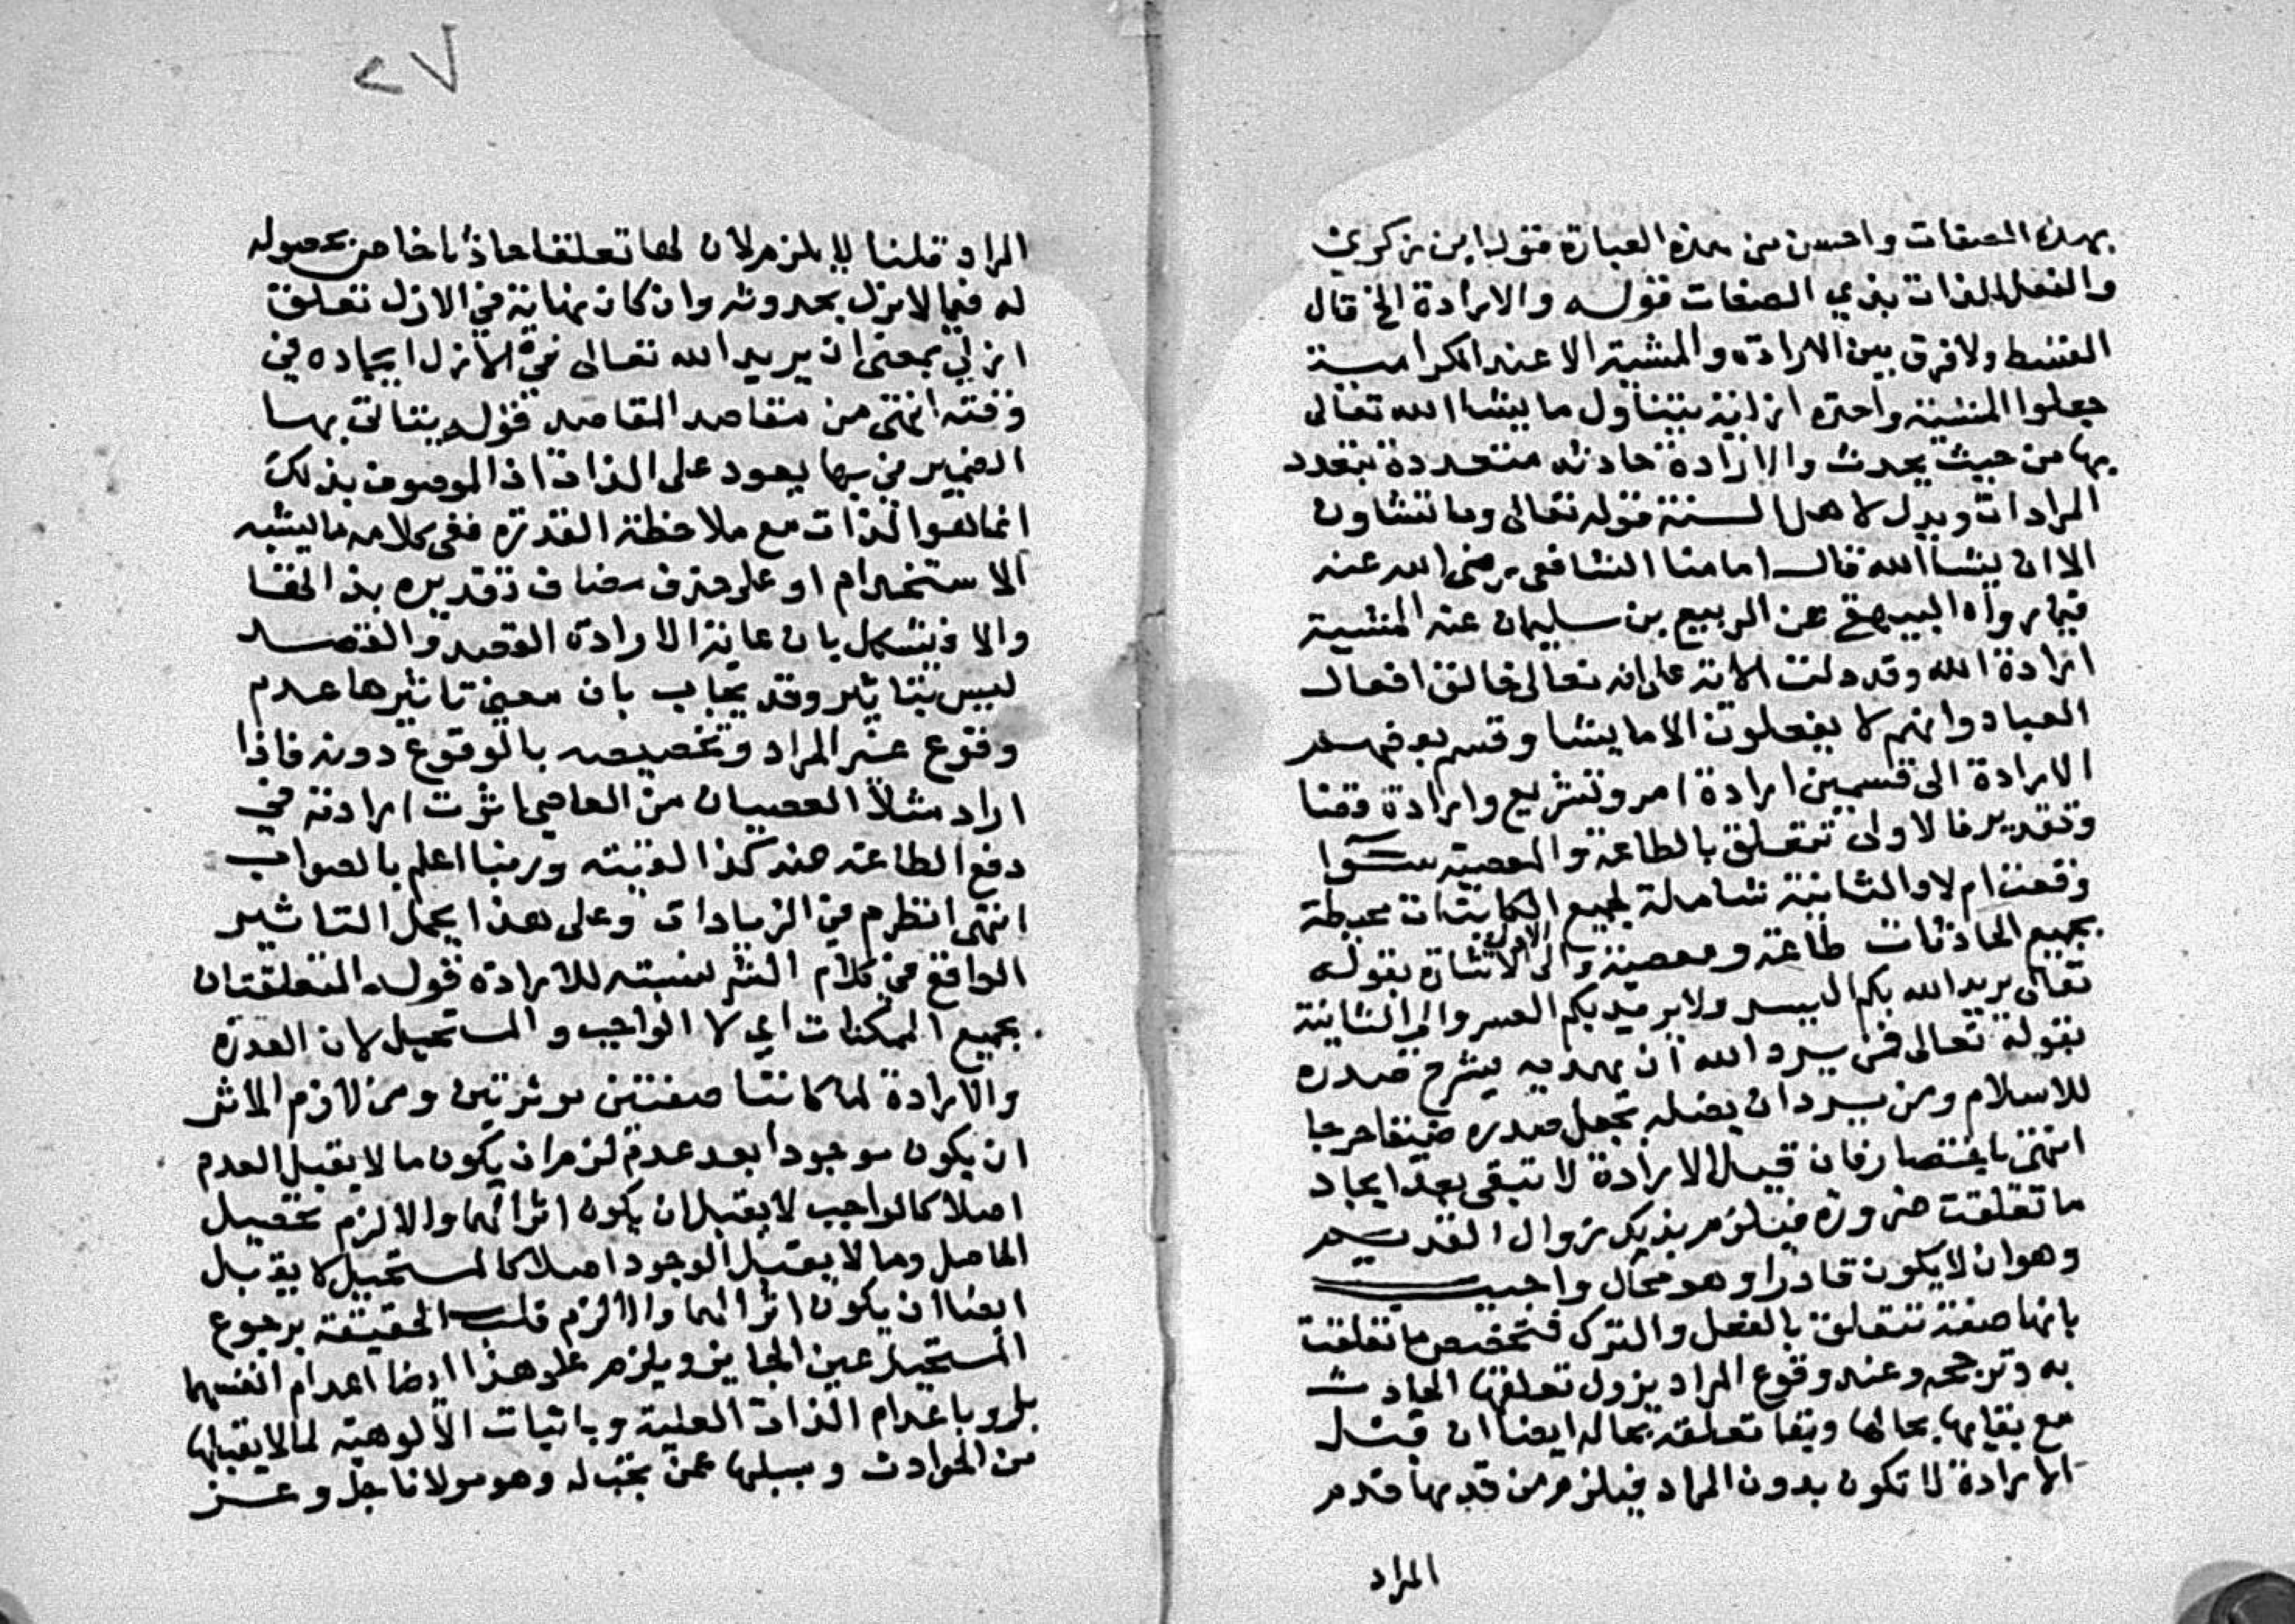 بهذه الصفات واحسن من هذه العبارة قول ابن زكري
والفعل للذات بذي الصفات قوله والارادة الخ قال
القسط ولا فرق بين الارادة والمشية الا عند الكرامية
جعلوا المشية واحدة ازلية يتناول ما يشا الله تعالى
بها من حيث يحدث والارادة حادثه متعددة بتعدد
المرادات ويدل لاهل السنة قوله تعالى وما تشاون
الا ان يشا الله قال امامنا الشافعي رضي الله عنه
فيما رواه البيهقي عن الربيع بن سليمان عنه المشية
ارادة الله وقد دلت الاية على انه تعالى خالق افعال
العباد وانهم لا يفعلون الا ما يشا وقسم بعضهم
الارادة الى قسمين ارادة امر وتشريع وارادة قضا
وتقدير فالاولى تتعلق بالطاعة والمعصية سوا
وقعت ام لا والثانية شاملة لجميع الكاينات محيطة
بجميع الحادثات طاعة ومعصية والى الاولى الاشارة بقوله
تعالى يريد الله بكم اليسر ولا يريد بكم العسر والى الثانية
بقوله تعالى فمن يرد الله ان يهديه يشرح صدره
للاسلام ومن يرد ان يضله يجعل صدره ضيقا حرجا
انتهى باختصار فان قيل الارادة لا تبقى بعد ايجاد
ما تعلقت ضرورة فيلزم بذلك زوال القديم
وهو ان لا يكون قادرا وهو محال واجيب
بانها صفة تتعلق بالفعل والترك فتخصص ما تعلقت
به وترجحه وعند وقوع المراد يزول تعلقها الحادث
مع بقايها بحالها وبقا تعلقه بحاله ايضا ان قيل
الارادة لا تكون بدون المراد فيلزم من قدمها قدم
المراد
٢٧
المراد قلنا لا يلزم لان لها تعلقا حادثا خاصا بحصوله
له فيما لا يزل بحدوثه وان كان نهاية في الازل تعلق
ازلي بمعنى ان يريد الله تعالى في الازل ايجاده في
وقته انتهى من مقاصد المقاصد قوله يتاتى بها
الضمير في بها يعود على الذات اذ الموصوف بذلك
انما هو الذات مع ملاحظة القدرة ففي كلامه ما يشبه
الاستخدام او على حذف مضاف تقديره بذالخفا
والا فيشكل بان غاية الارادة القصد والقصد
ليس بتاثير وقد يجاب بان معنى تاثيرها عدم
وقوع غير المراد وتخصيصه بالوقوع دونه فاذا
اراد مثلا العصيان من العاصي اثرت ارادته في
دفع الطاعة ضد كذا القيته وربنا اعلم بالصواب
انتهى انظر م في الزيادات وعلى هذا يحمل التاثير
الواقع في كلام الشر نسبته للارادة قوله المتعلقتان
بجميع الممكنات اي لا الواجب والمستحيل لان القدرة
والارادة لما كانتا صفتين موثرتين ومن لازم الاثر
ان يكون موجودا بعد عدم لزم ان يكون ما لا يقبل العدم
اصلا كالواجب لا يقبل ان يكون اثرا لهما والا لزم تحصيل
الحاصل وما لا يقبل الوجود اصلا كالمستحيل لا يقبل
ايضا ان يكون اثرا لهما والا لزم قلب الحقيقة برجوع
المستحيل عين الجايز ويلزم على هذا ايضا اعدام انفسهما
بل وباعدام الذات العلية وباثبات الالوهية لما لا يقبلها
من الحوادث وسلبها عمن تجب له وهو مولانا جل وعز